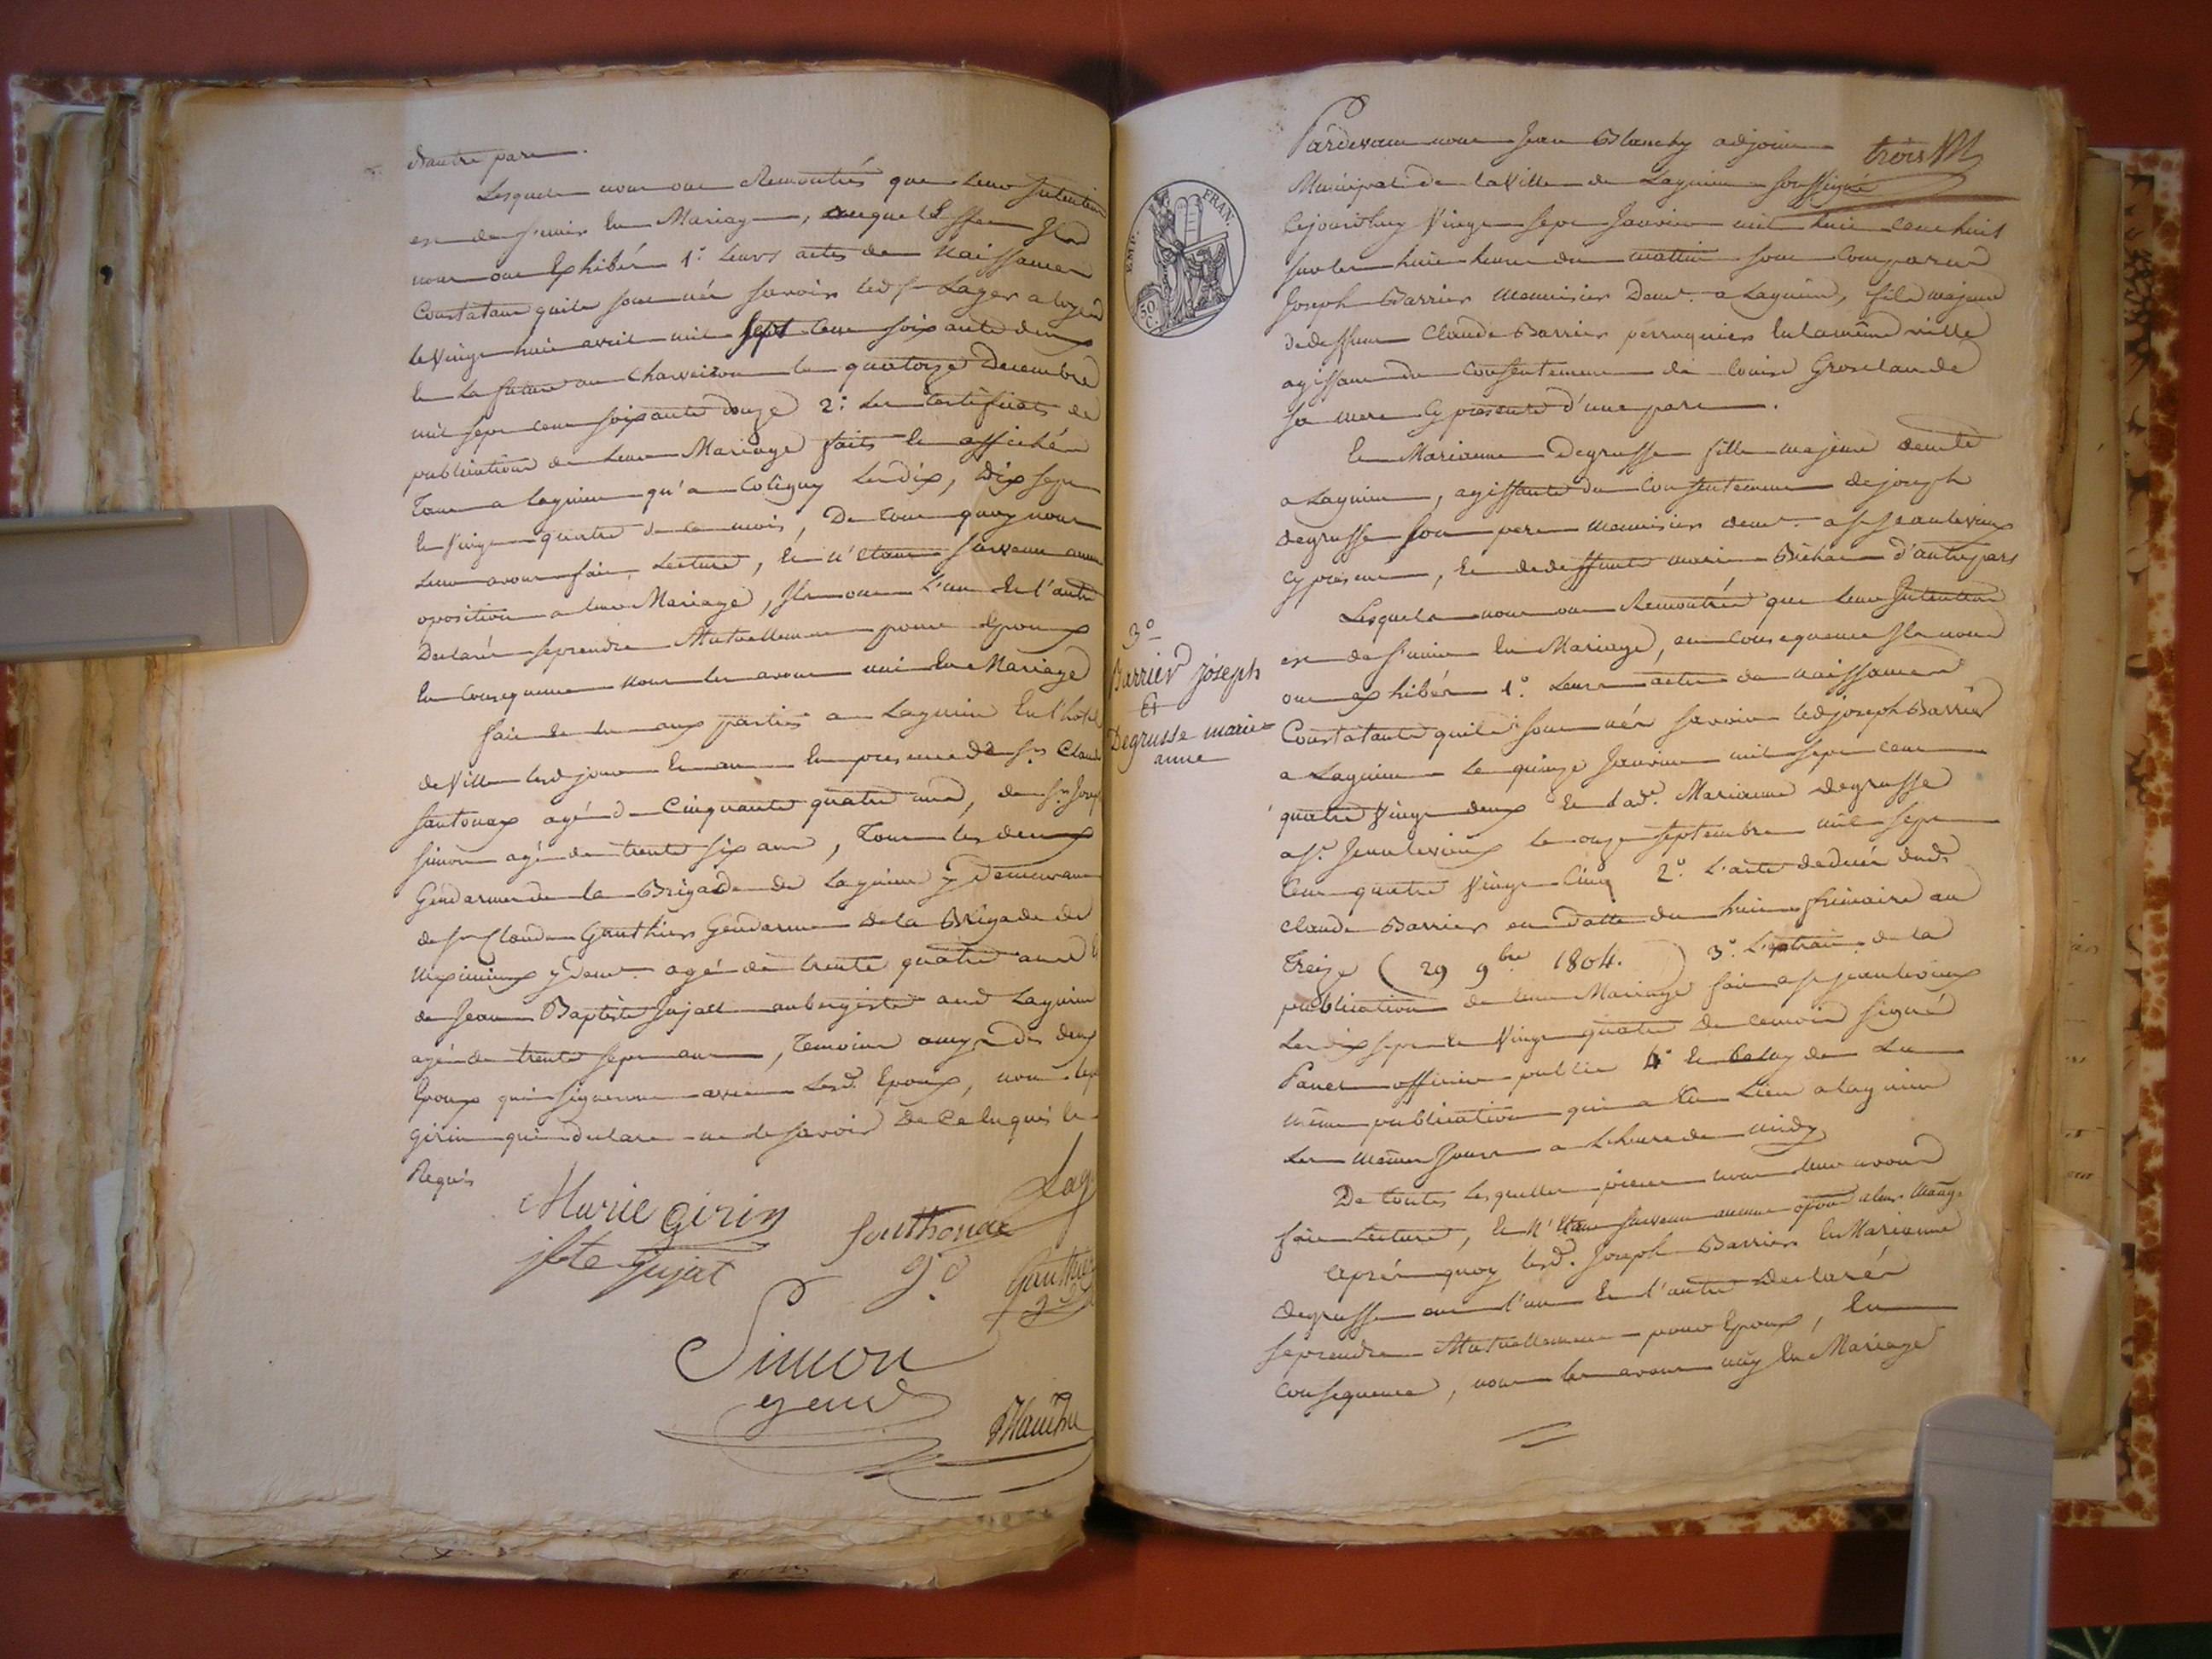 d'autre part.
Lesquels nous ont Remontrés que leur Intention
est de s'unir En Mariage, auquel Effet Ils
nous ont Exhibés 1.° Leurs actes de Naissances
Constatant quils sont nés savoir led. Sr. Lager a
le Vingt huit avril mil sept Cent soixante deux
Et La future au Charveiron le quatorze Decembre
mil sept cent soixante douze 2.° Les Certificats de
publications de Leur Mariage faits Et affichés
Tant a Lagnieu qu'a Coligny Les dix, Dix sept
Et Vingt quatre de ce mois, De tout quoy nous
Leur avons fait Lecture, Et n'Etant survenu aucune
oposition a leur Mariage, Ils ont L'un Et l'autre
Declarés se prendre Mutuellement pour Epoux
En Consequence Nous les avons uni En Mariage
fait Et Lu aux parties a Lagnieu En l'hotel
de Ville lesd. jour Et an En presence de Sr. Claude
Santonax agé de Cinquante quatre ans, de Sr. Joseph
Simon agé de trente six ans, Tous les deux
Gendarmes de la Brigade de Lagnieu y Demeurant
de Sr. Claude Gauthier Gendarme de la Brigade de
Meximieux y demt. agé de trente quatre ans Et
de Jean Baptiste Jujat aubergiste aud. Lagnieu
agé de trente sept ans, Temoins amys des deux
Epoux qui signeront avec Lesd. Epoux, non led.
Girin qui declare ne le savoir De Ce Enquis Et
Requis
Marie girin
Lag
Santhonax
gd.
jbte Jujat
Gauthier
gd.
Simon
gend
Blanchy
Pardevant nous Jean Blanchy adjoint
trois
Municipal de la Ville de Lagnieu soussigné
Cejourd'huy Vingt sept Janvier mil huit cent huit
sur les huit heures du mattin sont Comparus
EMP. FRAN.
50 C.
Joseph Barrier Menuisier Demt. a Lagnieu, fils majeur
de deffunt Claude Barrier perruquier En la même ville
agissant du Consentement de Louise Groselande
sa mere Cy presente d'une part.
Et Marianne Degrusse fille majeure demte
a Lagnieu, agissante du Consentement de joseph
degrusse son pere menuisier demt. a St Jean levieux
cy present, Et de deffunte marie Bichat d'autre part
Lesquels nous ont Remontrés que leur Intention
3°
Barrier joseph
Et
Degrusse marie
anne
est de s'unir En Mariage, en Consequence Ils nous
ont exhibés 1.° Leurs actes de naissances
Constatants quils sont nés savoir led. joseph Barrier
a Lagnieu le quinze Janvier mil sept cent
quatre Vingt deux Et lade. Marianne degrusse
a St. Jean levieux le onze septembre mil sept
Cent quatre Vingt Cinq 2.° L'acte de decès dud.
Claude Barrier en datte du huit frimaire an
Treize (29 9bre 1804.) 3.° L'extrait de la
publication de leur Mariage fait a St jean levieux
Les dix sept Et Vingt quatre de ce mois signé
Panet officier public 4.° Et Celuy de La
même publication qui a Eu Lieu a Lagnieu
Les mêmes Jours a L'heure de midy
De toutes Lesquelles pieces nous leur avons
fait Lecture, Et N'Etant survenu aucune opoon a leur Mariage
Après quoy lesd. Joseph Barrier Et Marianne
degrusse ont l'un Et l'autre Declarés
se prendre Mutuellement pour Epoux, En
Consequence, nous les avons uny En Mariage